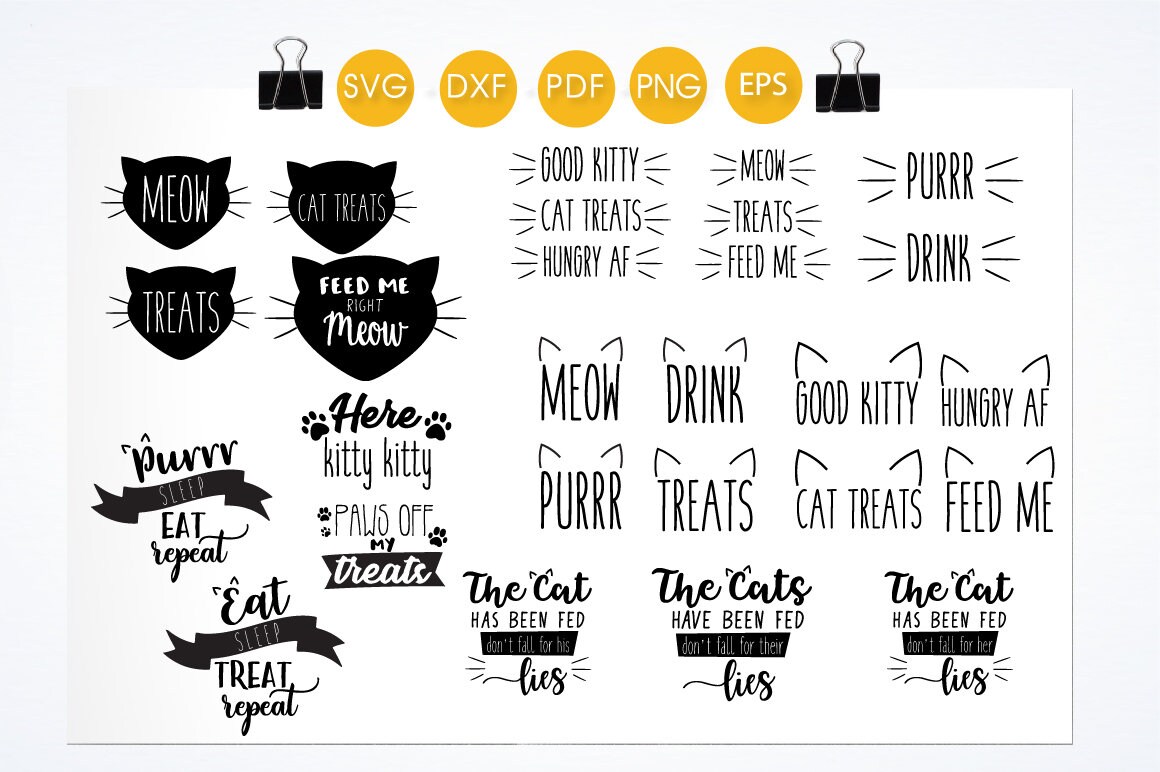 SVG
DXF
PDF
PNG
EPS
MEOW
CAT TREATS
TREATS
FEED ME
RIGHT
Meow
GOOD KITTY
CAT TREATS
HUNGRY AF
MEOW
TREATS
FEED ME
PURRR
DRINK
MEOW
DRINK
GOOD KITTY
HUNGRY AF
PURRR
TREATS
CAT TREATS
FEED ME
Here
kitty kitty
Purrr
SLEEP
EAT
repeat
PAWS OFF
MY
treats
Eat
SLEEP
TREAT
repeat
The Cat
HAS BEEN FED
don't fall for his
lies
The Cats
HAVE BEEN FED
don't fall for their
lies
The Cat
HAS BEEN FED
don't fall for her
lies